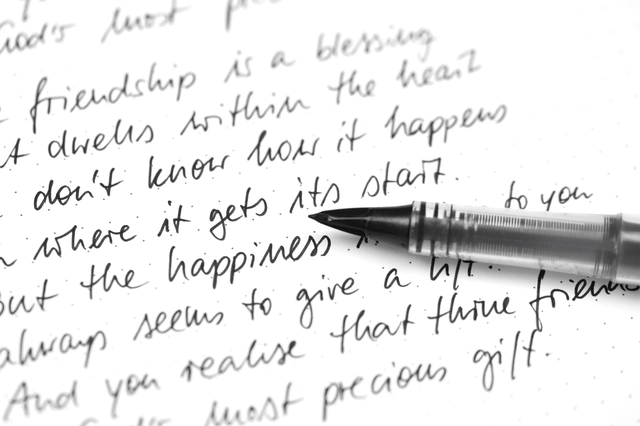 God's most
friendship is a blessing
dwells within the heart
don't know how it happens
where it gets its start.
to you
But the happiness
always seems to give a lift.
And you realise that thine
most precious gift.